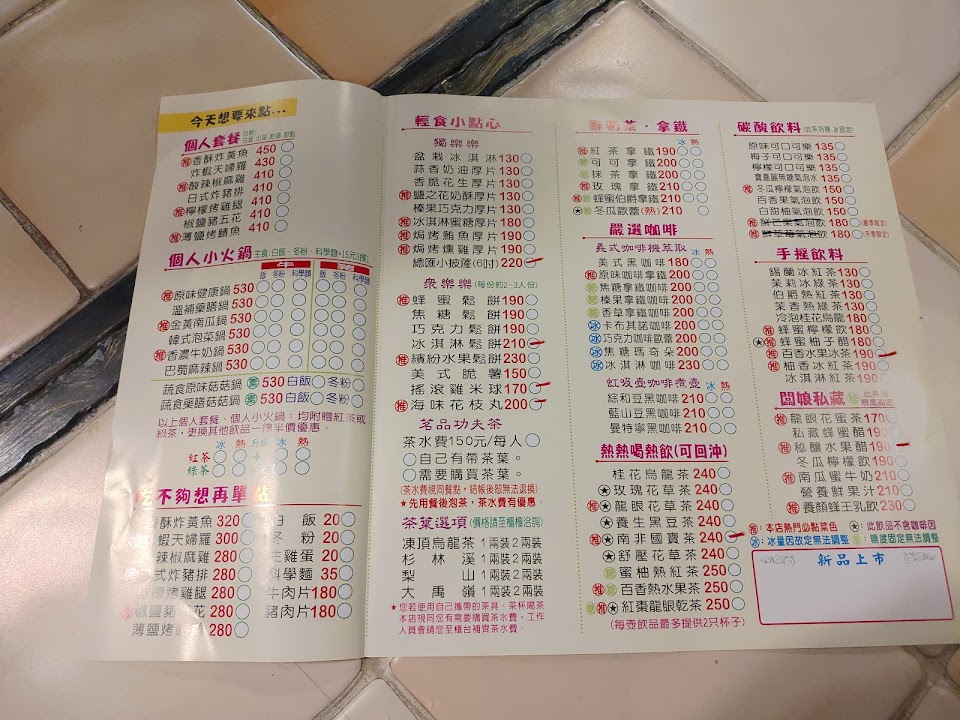 今天想要來點...
個人套餐
推 香酥炸黃魚 450
炸蝦天婦羅 430
推 酸辣椒麻雞 410
日式炸豬排 410
推 檸檬烤雞腿 410
椒鹽豬五花 410
推 薄鹽烤鯖魚 410
個人小火鍋 主食:白飯、冬粉、科學麵+15元3擇1
牛 豬
飯 冬粉 科學麵 飯 冬粉 科學麵
推 原味健康鍋 530
溫補藥膳鍋 530
推 金黃南瓜鍋 530
韓式泡菜鍋 530
推 香濃牛奶鍋 530
巴蜀麻辣鍋 530
蔬食原味菇菇鍋 素 530 白飯 冬粉
蔬食藥膳菇菇鍋 素 530 白飯 冬粉
以上個人套餐、個人小火鍋:均附贈紅茶或
綠茶,更換其他飲品一律半價優惠。
冰 熱 冰 熱
紅茶
綠茶
不夠想再單點
香酥炸黃魚 320 白飯 20
蝦天婦羅 300 冬粉 20
辣椒麻雞 280 生雞蛋 20
式炸豬排 280 科學麵 35
檬烤雞腿 280 牛肉片 180
椒鹽豬五花 280 豬肉片 180
薄鹽烤 280
輕食小點心
獨樂樂
盆栽冰淇淋 130
蒜香奶油厚片 130
香脆花生厚片 130
推 鹽之花奶酥厚片 130
榛果巧克力厚片 130
推 冰淇淋蜜糖厚片 180
推 焗烤鮪魚厚片 190
推 焗烤燻雞厚片 190
總匯小披薩(6吋) 220
眾樂樂 (每份約2-3人份)
推 蜂蜜鬆餅 190
焦糖鬆餅 190
巧克力鬆餅 190
冰淇淋鬆餅 210
推 繽紛水果鬆餅 230
美式脆薯 150
搖滾雞米球 170
推 海味花枝丸 200
茗品功夫茶
茶水費150元/每人
自己有帶茶葉。
需要購買茶葉。
(茶水費視同餐點,結帳後恕無法認換)
★先用餐後泡茶,茶水費有優惠。
茶葉選項 (價格請至櫃檯洽詢)
凍頂烏龍茶 1兩裝 2兩裝
杉林溪 1兩裝 2兩裝
梨山 1兩裝 2兩裝
大禹嶺 1兩裝 2兩裝
★您若使用自己攜帶的茶具、茶杯喝茶
本店視同您有需要購買茶水費,工作
人員會請您至櫃台補齊茶水費.
鮮奶茶・拿鐵
冰 熱
推 紅茶拿鐵 190
可可拿鐵 200
抹茶拿鐵 200
推 玫瑰拿鐵 210
推 蜂蜜伯爵拿鐵 210
冬瓜歐蕾(熱) 210
嚴選咖啡
義式咖啡機萃取 冰 熱
美式黑咖啡 180
推 原味咖啡拿鐵 200
焦糖拿鐵咖啡 200
榛果拿鐵咖啡 200
香草拿鐵咖啡 200
冰 卡布其諾咖啡 200
冰 巧克力咖啡歐蕾 200
冰 焦糖瑪奇朵 200
冰 冰淇淋咖啡 230
虹吸壺咖啡煮壺 冰 熱
綜和豆黑咖啡 210
藍山豆黑咖啡 210
曼特寧黑咖啡 210
熱熱喝熱飲(可回沖)
桂花烏龍茶 240
玫瑰花草茶 240
推 龍眼花草茶 240
養生黑豆茶 240
推 南非國寶茶 240
舒壓花草茶 240
蜜柚熱紅茶 250
推 百香熱水果茶 250
推 紅棗龍眼乾茶 250
(每壺飲品最多提供2只杯子)
碳酸飲料
原味可口可樂 135
梅子可口可樂 135
檸檬可口可樂 135
寶嘉麗無糖氣泡水 135
推 冬瓜檸檬氣泡飲 150
百香果氣泡飲 150
白甜柚氣泡飲 150
氣泡飲 180
推 鮮草莓氣泡飲 180
手搖飲料
錫蘭冰紅茶 130
茉莉冰綠茶 130
伯爵熱紅茶 130
茉香熱綠茶 130
冷泡桂花烏龍 180
推 蜂蜜檸檬飲 180
推 蜂蜜柚子醋 180
推 百香水果冰茶 190
推 柚香冰紅茶 190
冰淇淋紅茶 190
闆娘私藏
推 龍眼花蜜茶 170
私藏蜂蜜醋 190
推 秘釀水果醋 190
冬瓜檸檬飲 190
推 南瓜蜜牛奶 210
營養鮮果汁 210
推 養顏蜂王乳飲 230
推:本店熱門必點菜色 ★:此飲品不含咖啡因
冰:冰量因故定無法調整 糖:糖度固定無法調整
新品上市